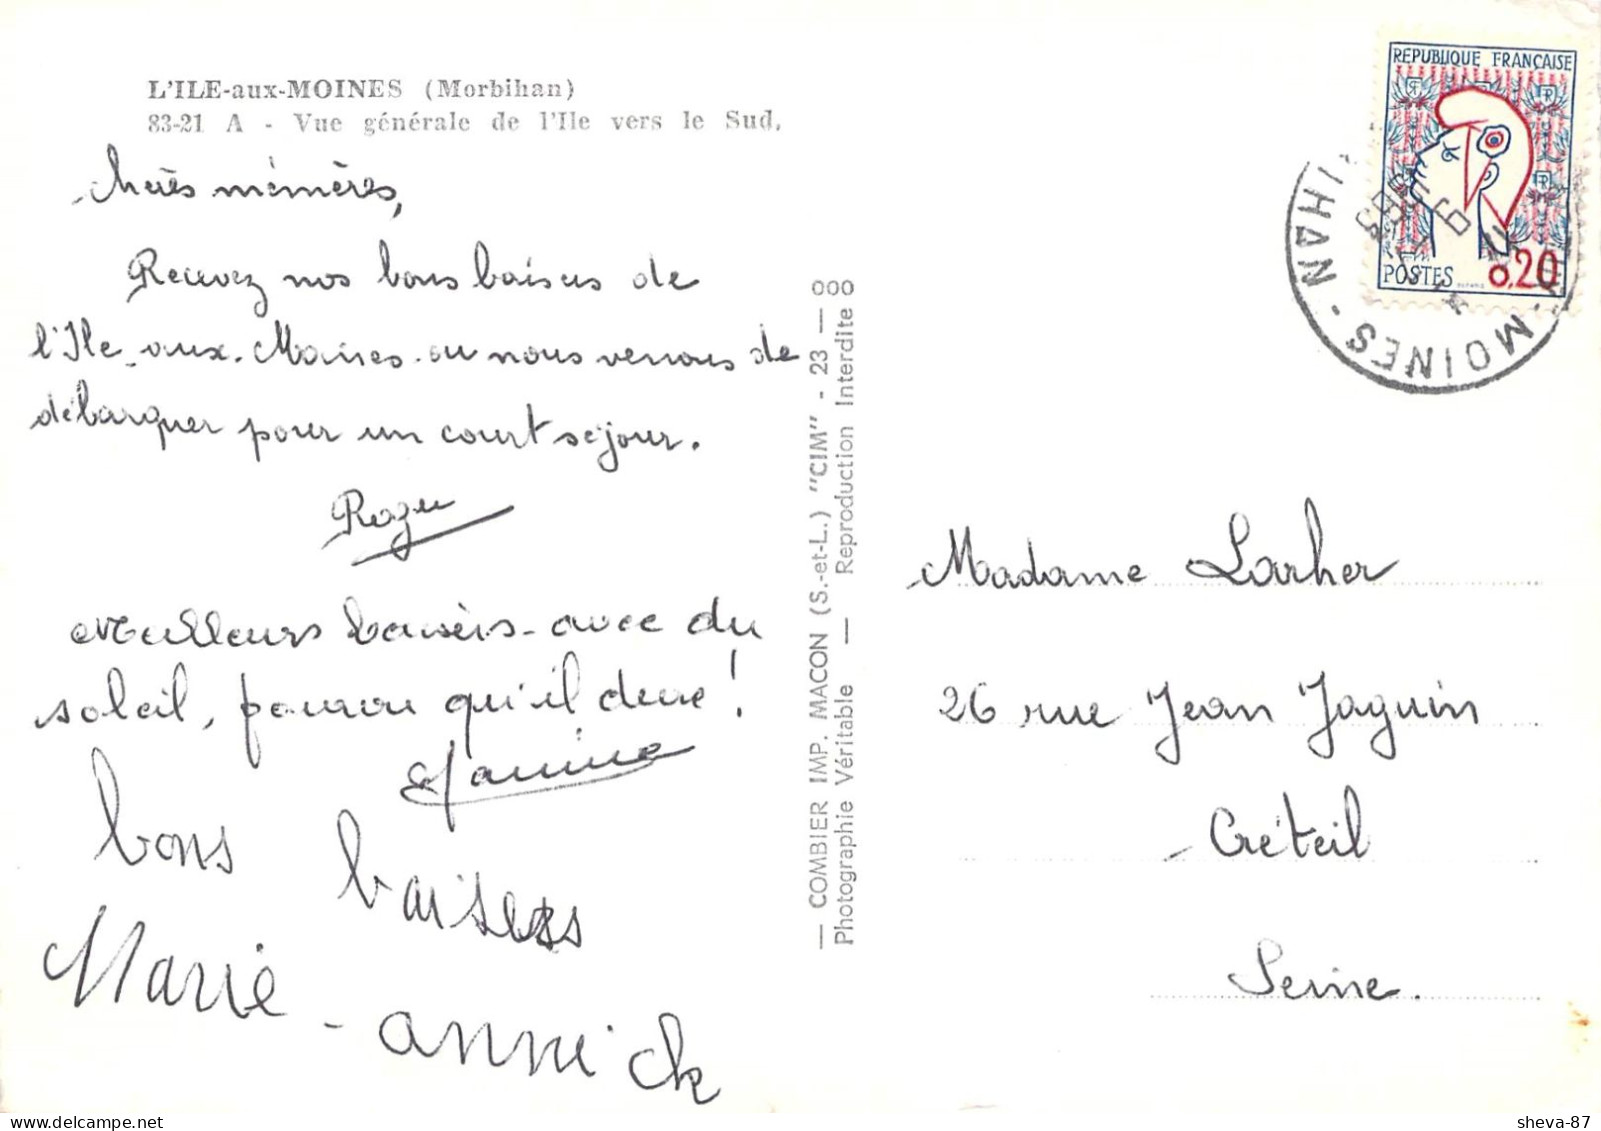 L'ILE-aux-MOINES (Morbihan)
83-21 A - Vue générale de l'Ile vers le Sud.
Chères mémères,
Recevez nos bons baisers de
l'Ile-aux-Moines où nous venons de
débarquer pour un court séjour.
Roger
Meilleurs baisers avec du
soleil, pourvu qu'il dure!
Janine
bons baisers
Marie-annick
— COMBIER IMP. MACON (S.-et-L.) "CIM" - 23 — 000
Photographie Véritable — Reproduction Interdite
REPUBLIQUE FRANÇAISE
POSTES 0,20
MOINES - IHAN
Madame Larher
26 rue Jean Jaguin
Créteil
Seine.
sheva-87